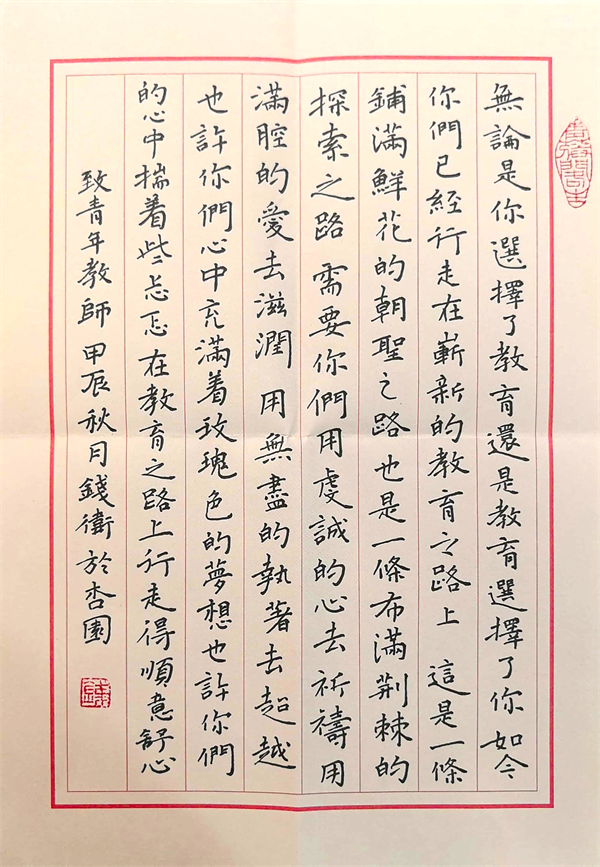 無論是你選擇了教育還是教育選擇了你 如今
你們已經行走在嶄新的教育之路上 這是一條
鋪滿鮮花的朝聖之路也是一條布滿荆棘的
探索之路 需要你們用虔誠的心去祈禱用
滿腔的愛去滋潤 用無盡的執著去超越
也許你們心中充滿着玫瑰色的夢想也許你們
的心中揣着些忐忑在教育之路上行走得順意舒心
致青年教師 甲辰秋月錢衛於杏園